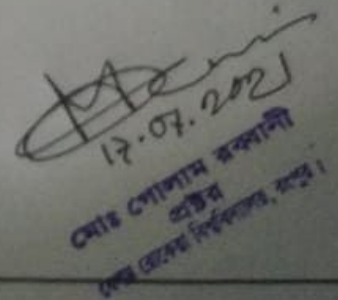 17.07.2021
মোঃ গোলাম রব্বানী
প্রক্টর
বেগম রোকেয়া বিশ্ববিদ্যালয়, রংপুর।